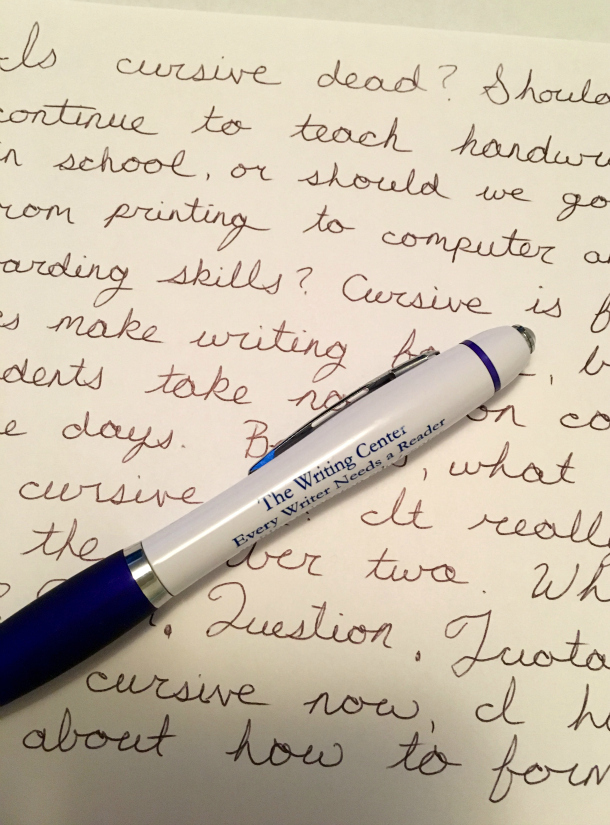 Is cursive dead? Should
continue to teach
in school, or should we go
printing to computer
skills? Cursive is
make writing
take
days.
, what
cursive
It really
the two.
. Question. Quota
cursive now, I
about how to form
The Writing Center
Every Writer Needs a Reader